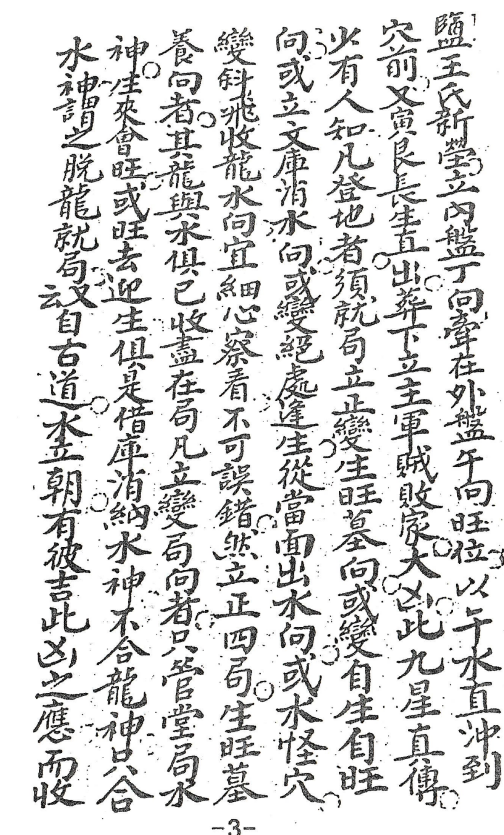 鹽王氏新塋立內盤丁向牽在外盤午向旺位以午水直沖到
穴前又寅艮長生直出葬下立主軍賊敗家大凶此九星真傳
少有人知凡登地者須就局立正變生旺墓向或變自生自旺
向或立文庫消水向或變絕處逢生從當面出水向或水怪穴
變斜飛收龍水向宜細心察看不可誤錯然立正四局生旺墓
養向者其龍與水俱已收盡在局凡立變局向者只管堂局水
神生來會旺或旺去迎生俱是借庫消納水神不合龍神只合
水神謂之脫龍就局又云自古道水立朝有彼吉此凶之應而收
-3-